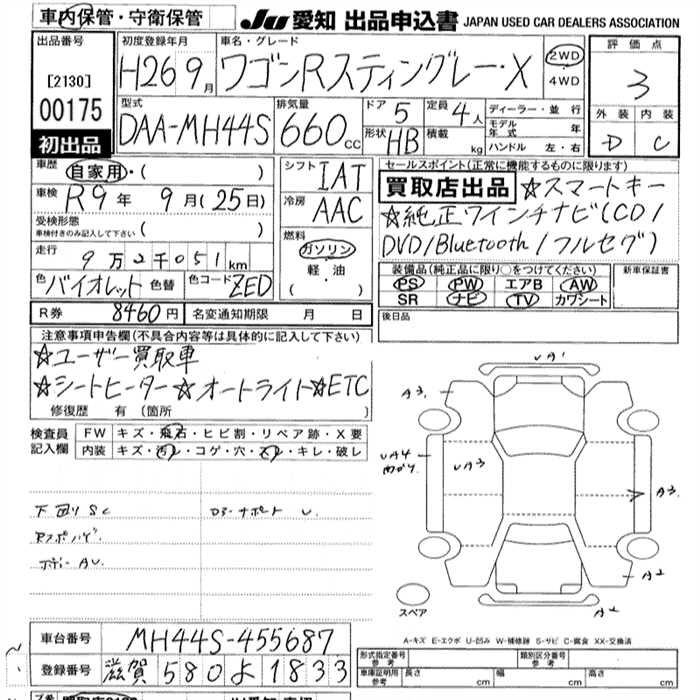 車内保管・守衛保管
JU 愛知 出品申込書 JAPAN USED CAR DEALERS ASSOCIATION
出品番号 初度登録年月 車名・グレード 評価点
[2130] H26 9月 ワゴンRスティングレー・X 2WD 4WD 3
00175 型式 排気量 ドア 5 定員 4人 ディーラー・並行 外装 内装
DAA-MH44S 660cc 形状 HB 積載 kg モデル年式 年 D C
初出品 ハンドル 左・右
車歴 自家用・( ) シフト IAT セールスポイント(正常に機能するものに限ります)
車検 R9年 9月(25日) 冷房 AAC 買取店出品 ☆スマートキー
受検形態 ( ) ☆純正ワインチナビ(CD/
車検付きのみ記入して下さい
走行 9万2千051km 燃料 ガソリン DVD/Bluetooth/フルセグ)
色 バイオレット 色替 色コード ZED ・軽油 ( ) 装備品(純正品に限り○をつけてください) 新車保証書
PS PW エアB AW
R券 8460円 名変通知期限 月 日 SR ナビ TV カワシート
注意事項申告欄(不具合内容等は具体的に記入して下さい) 後日品
☆ユーザー買取車
☆シートヒーター☆オートライト☆ETC
修復歴 有 (箇所 )
検査員 FW キズ・飛石・ヒビ割・リペア跡・X要
記入欄 内装 キズ・汚レ・コゲ・穴・スレ・キレ・破レ
UA1
A3 A3
UA4 UA3 A3
下回り SC
ボデー AU
A2
A2
スペア
A-キズ E-エクボ U-凹み W-補修跡 S-サビ C-腐食 XX-交換済
車台番号 MH44S-455687
形式指定番号 参考 類別区分番号 参考
登録番号 滋賀 580 よ 1833
車庫証明用 参考 長さ cm 幅 cm 高さ cm